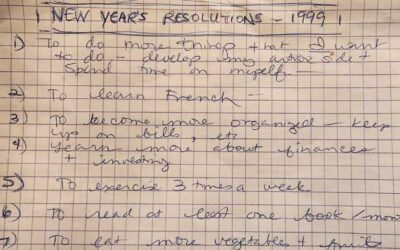 NEW YEAR'S RESOLUTIONS - 1999
1) To do more things that I want
to do - develop my side +
Spend time on myself -
2) To learn French -
3) To become more organized - keep
up on bills, etc
4) Learn more about finances
+ investing
5) To exercise 3 times a week
6) To read at least one book/mon
7) To eat more vegetables + fruits